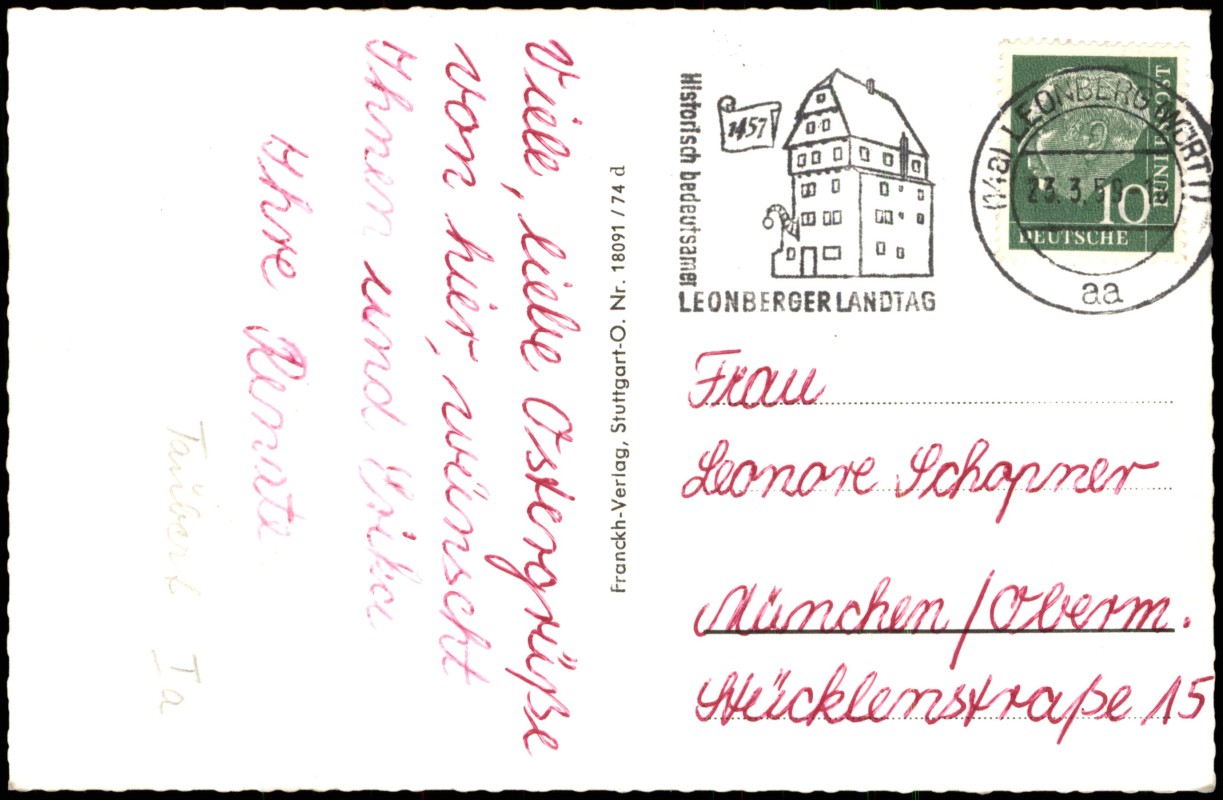 Viele, liebe Ostergrüße
von hier, wünscht
Ihnen und
Ihre Renate
Taubert Ia
Franckh-Verlag, Stuttgart-O. Nr. 18091/74 d
Historisch bedeutsamer
1457
LEONBERGER LANDTAG
(14a) LEONBERG (WÜRTT)
23.3.59
aa
10
DEUTSCHE
BUNDESPOST
Frau
Leonore Schopner
München/Oberm.
Stücklenstraße 15